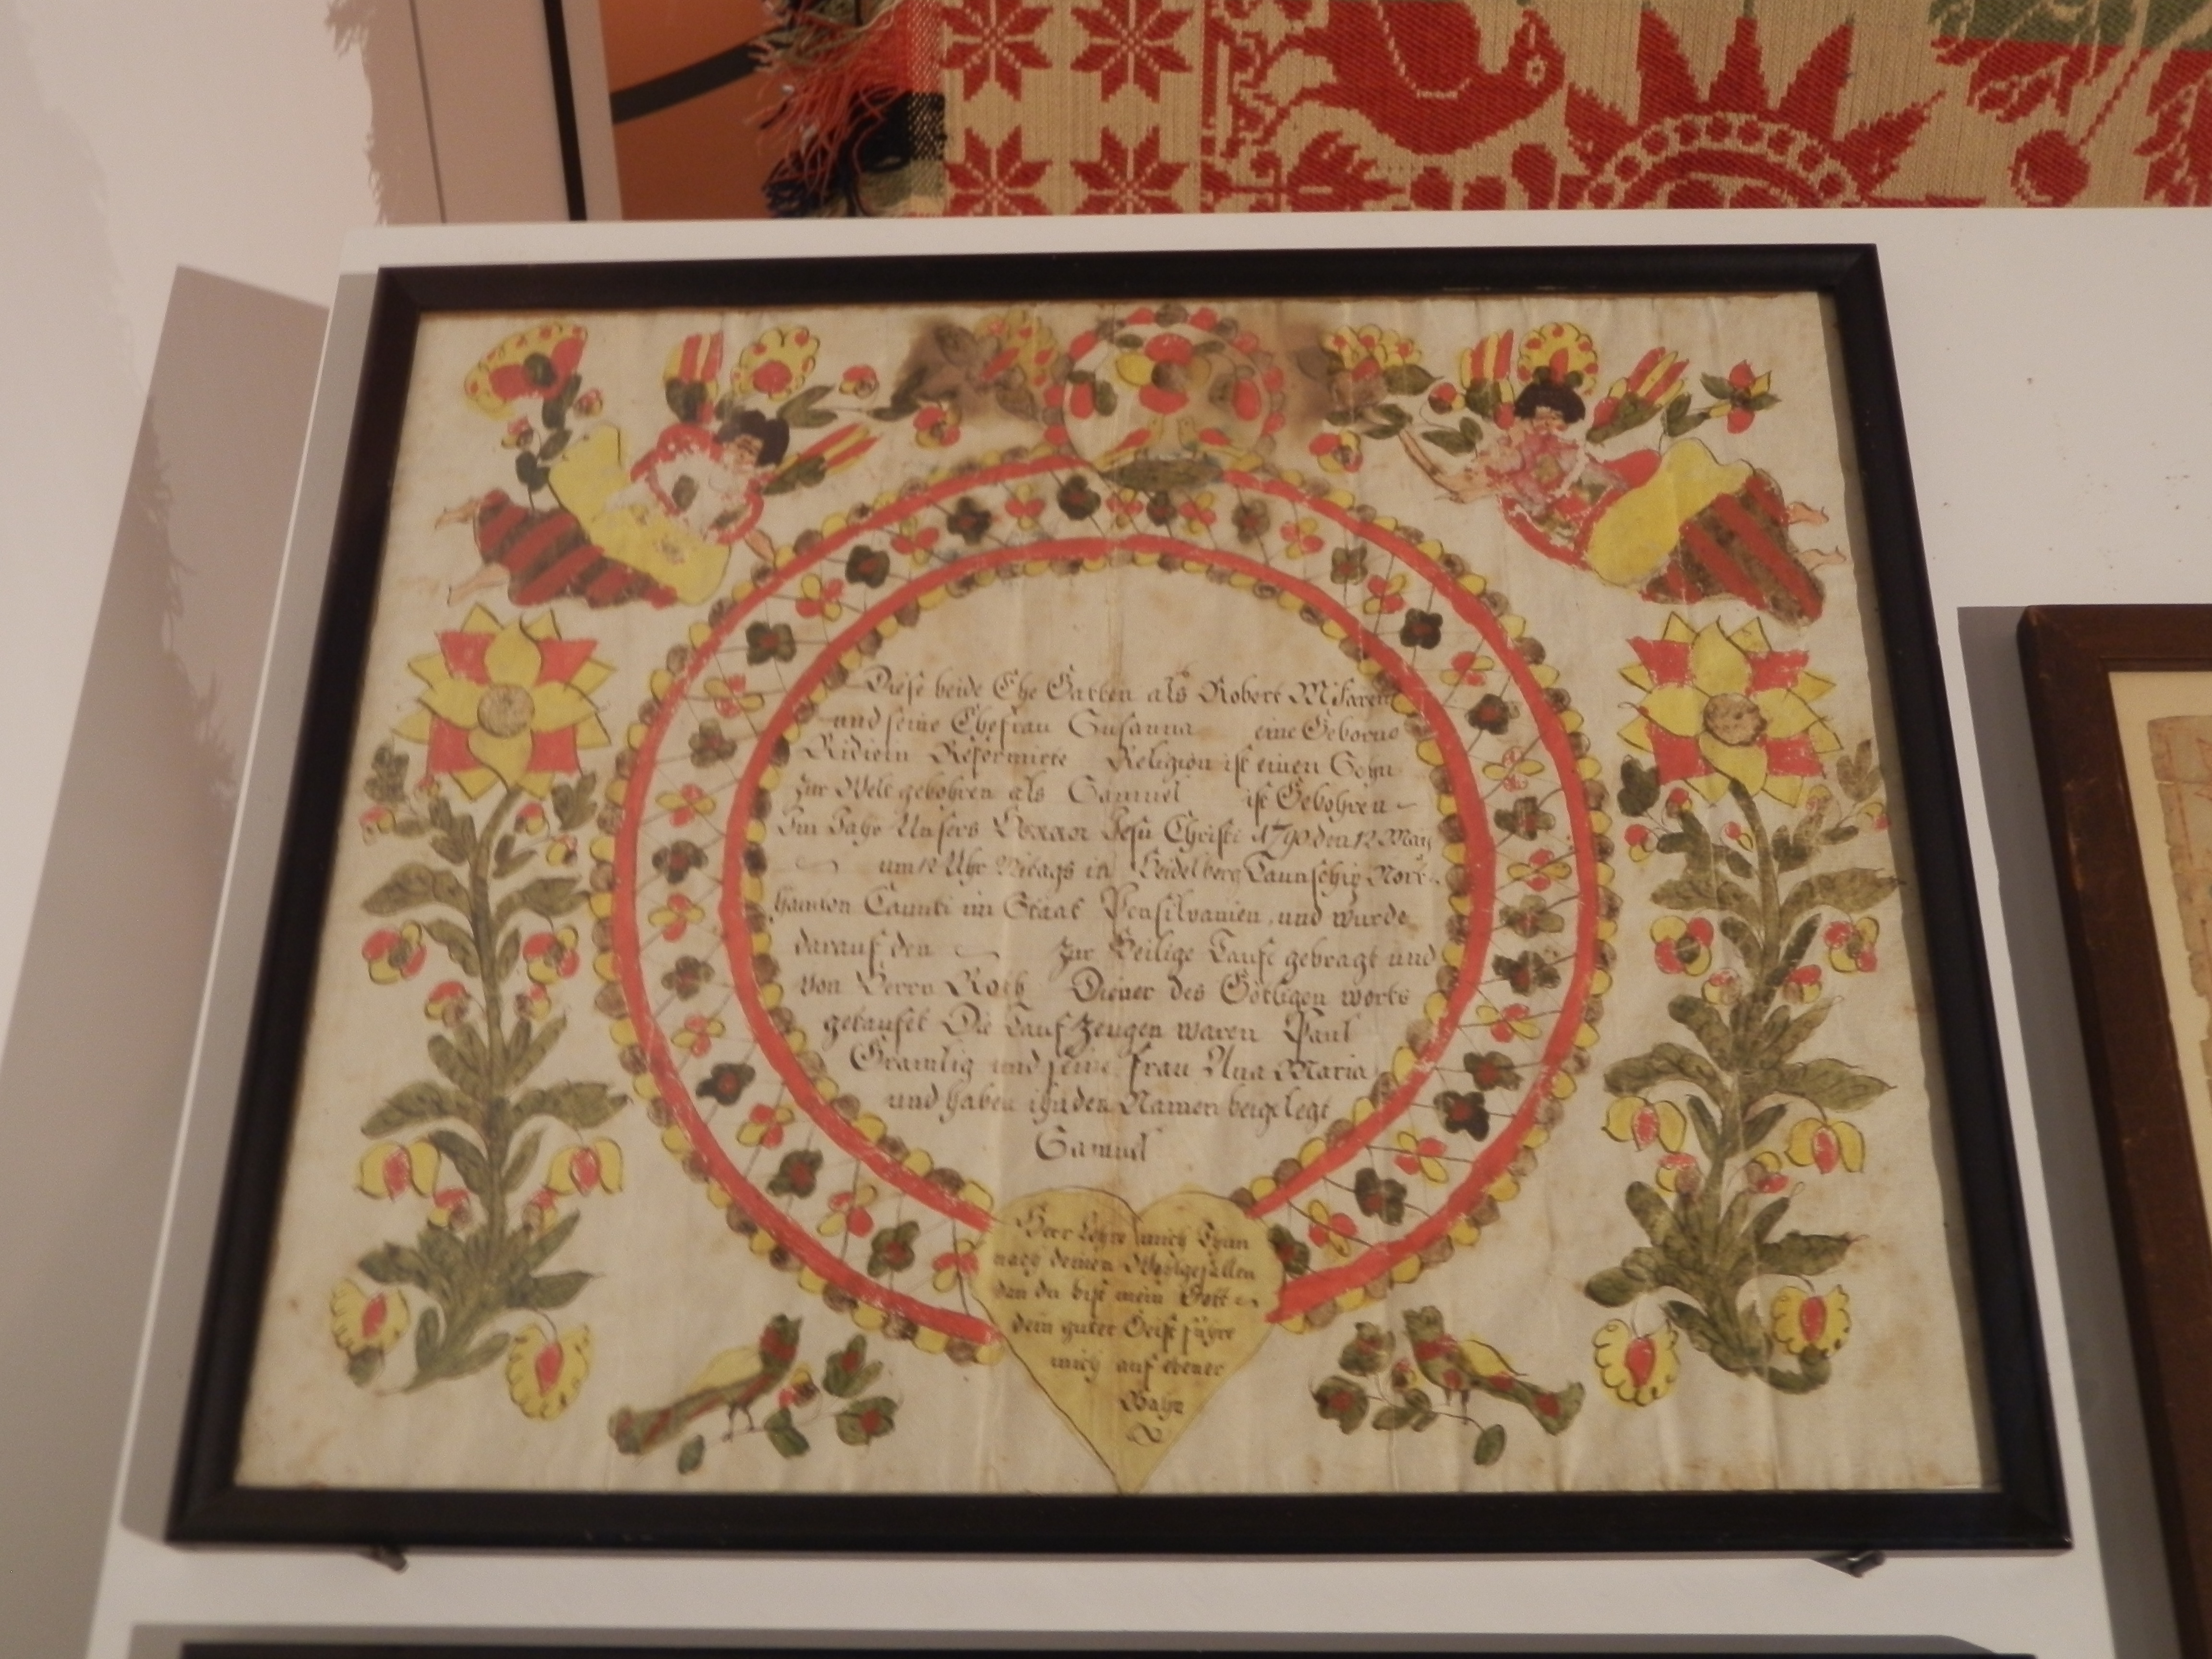 Diese beide Ehe Gatten als Robert
und seine Ehefrau Susanna eine Geborne
Reformirte Religion ist einen Sohn
Zur Welt gebohren als Samuel ist Gebohren
Im Jahr Unsers Herren Jesu Christi 1790 den 12 May
um 12 Uhr Mitags in Heidelberg Taunschip Nort
hamton Caunti im Staat Pensilvanien, und wurde
darauf den zur Heilige Taufe gebragt und
von Herrn Roth Diener des Götligen worts
getaufet Die Tauf Zeugen waren Paul
Gramlig und seine frau Ana Maria
und haben ihm den Namen beigelegt
Samuel
Herr Lehre mich Thun
nach deinen Wohlgefallen
dan du bist mein Gott
dein guter Geist führe
mich auf ebener
Bahn